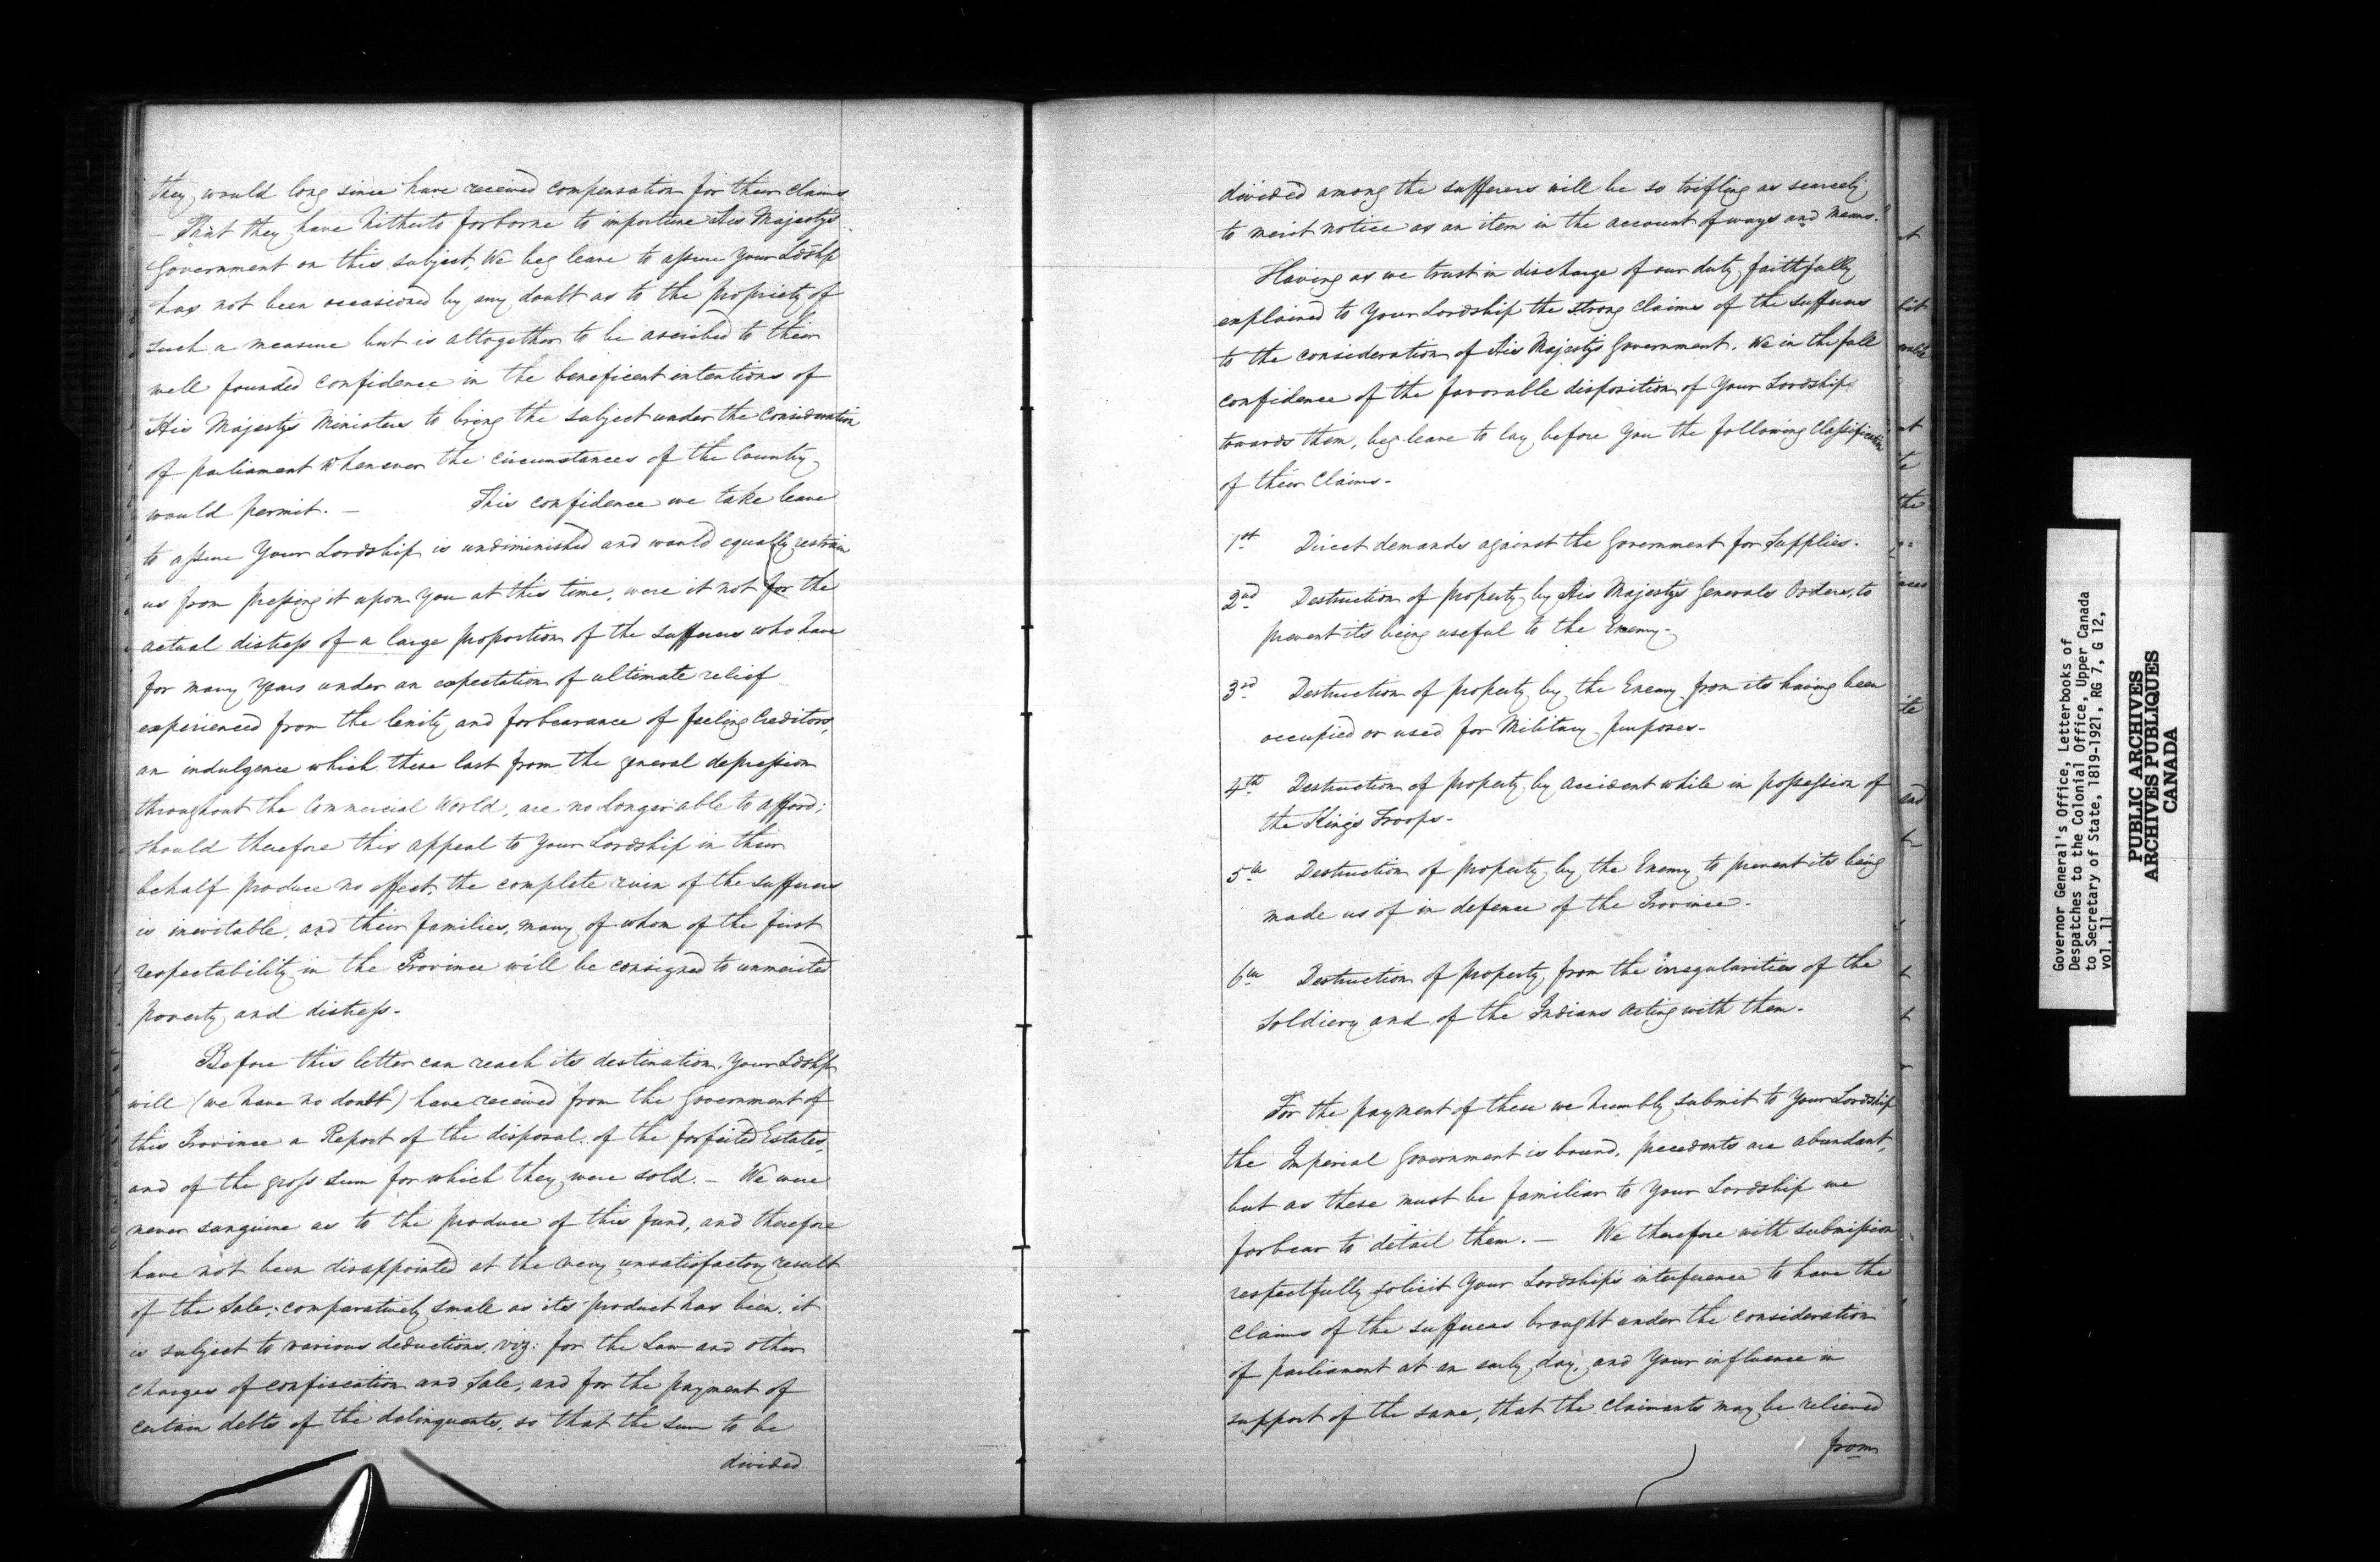 they would long since have received compensation for their claims
– That they have hitherto forborne to importune His Majesty's
Government on this subject, We beg leave to assure Your Ldshp
has not been occasioned by any doubt as to the propriety of
such a measure but is altogether to be ascribed to their
well founded confidence in the beneficent intentions of
His Majesty's Ministers to bring the subject under the Consideration
of parliament whenever the circumstances of the Country
would permit. – This confidence we take leave
to assure Your Lordship is undiminished and would equally restrain
us from pressing it upon You at this time, were it not for the
actual distress of a large proportion of the sufferers who have
for many Years under an expectation of ultimate relief
experienced from the lenity and forbearance of feeling Creditors,
an indulgence which these last from the general depression
throughout the Commercial World, are no longer able to afford;
should therefore this appeal to Your Lordship in their
behalf produce no effect, the complete ruin of the sufferers
is inevitable, and their families, many of whom of the first
respectability in the Province will be consigned to unmerited
poverty and distress.
Before this letter can reach its destination, Your Ldshp
will (we have no doubt) have received from the Government of
this Province a Report of the disposal of the forfeited Estates,
and of the gross sum for which they were sold. – We were
never sanguine as to the produce of this fund, and therefore
have not been disappointed at the very unsatisfactory result
of the Sale; comparatively small as its product has been, it
is subject to various deductions, viz: for the Law and other
charges of confiscation and Sale, and for the payment of
certain debts of the delinquents, so that the sum to be
divided
divided among the sufferers will be so trifling as scarcely
to merit notice as an item in the account of ways and Means.
Having as we trust in discharge of our duty faithfully
explained to Your Lordship the strong claims of the sufferers
to the consideration of His Majestys Government. We in the full
confidence of the favorable disposition of Your Lordship
towards them, beg leave to lay before You the following Classification
of their Claims.
1st Direct demands against the Government for Supplies.
2nd Destruction of property by His Majesty's Generals Orders, to
prevent its being useful to the Enemy.
3rd Destruction of property by the Enemy from its having been
occupied or used for Military purposes.
4th Destruction of property by accident while in possession of
the King's Troops.
5th Destruction of property by the Enemy to prevent its being
made us of in defence of the Province.
6th Destruction of property from the irregularities of the
Soldiery and of the Indians acting with them.
For the payment of these we humbly submit to Your Lordship
the Imperial Government is bound, precedents are abundant,
but as these must be familiar to Your Lordship we
forbear to detail them. – We therefore with submission
respectfully solicit Your Lordship's interference to have the
claims of the sufferers brought under the consideration
of parliament at an early day, and Your influence in
support of the same, that the Claimants may be relieved
from
Governor General's Office, Letterbooks of
Despatches to the Colonial Office, Upper Canada
to Secretary of State, 1819-1921, RG 7, G 12,
vol. 11
PUBLIC ARCHIVES
ARCHIVES PUBLIQUES
CANADA